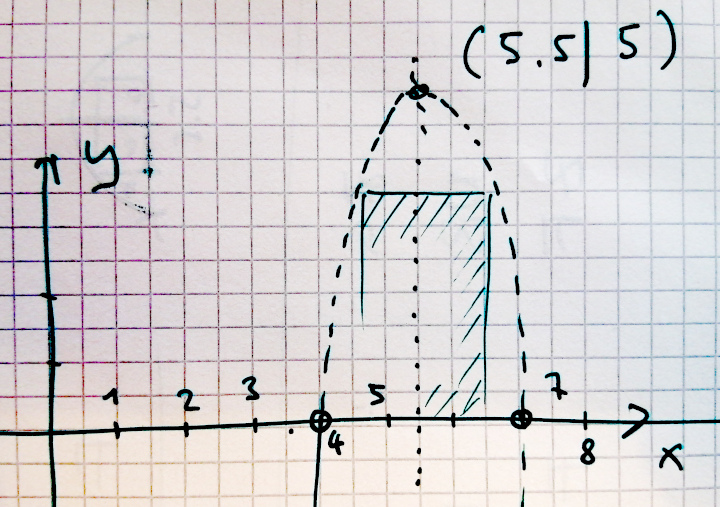 (5.5| 5)
y
1 2 3 5 7
4 8 x